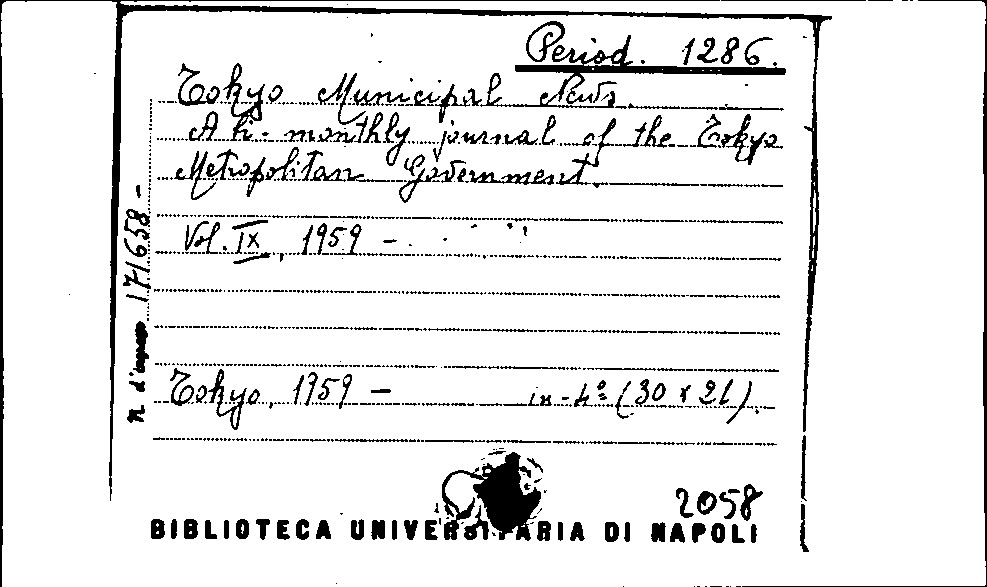 Period. 1286.
Tokyo Municipal News.
A bi-monthly journal of the Tokyo
Metropolitan Government.
Vol. IX, 1959 -
n. d'ingresso 171658 -
Tokyo, 1959 - in-4º (30 x 21).
2058
BIBLIOTECA UNIVERSITARIA DI NAPOLI